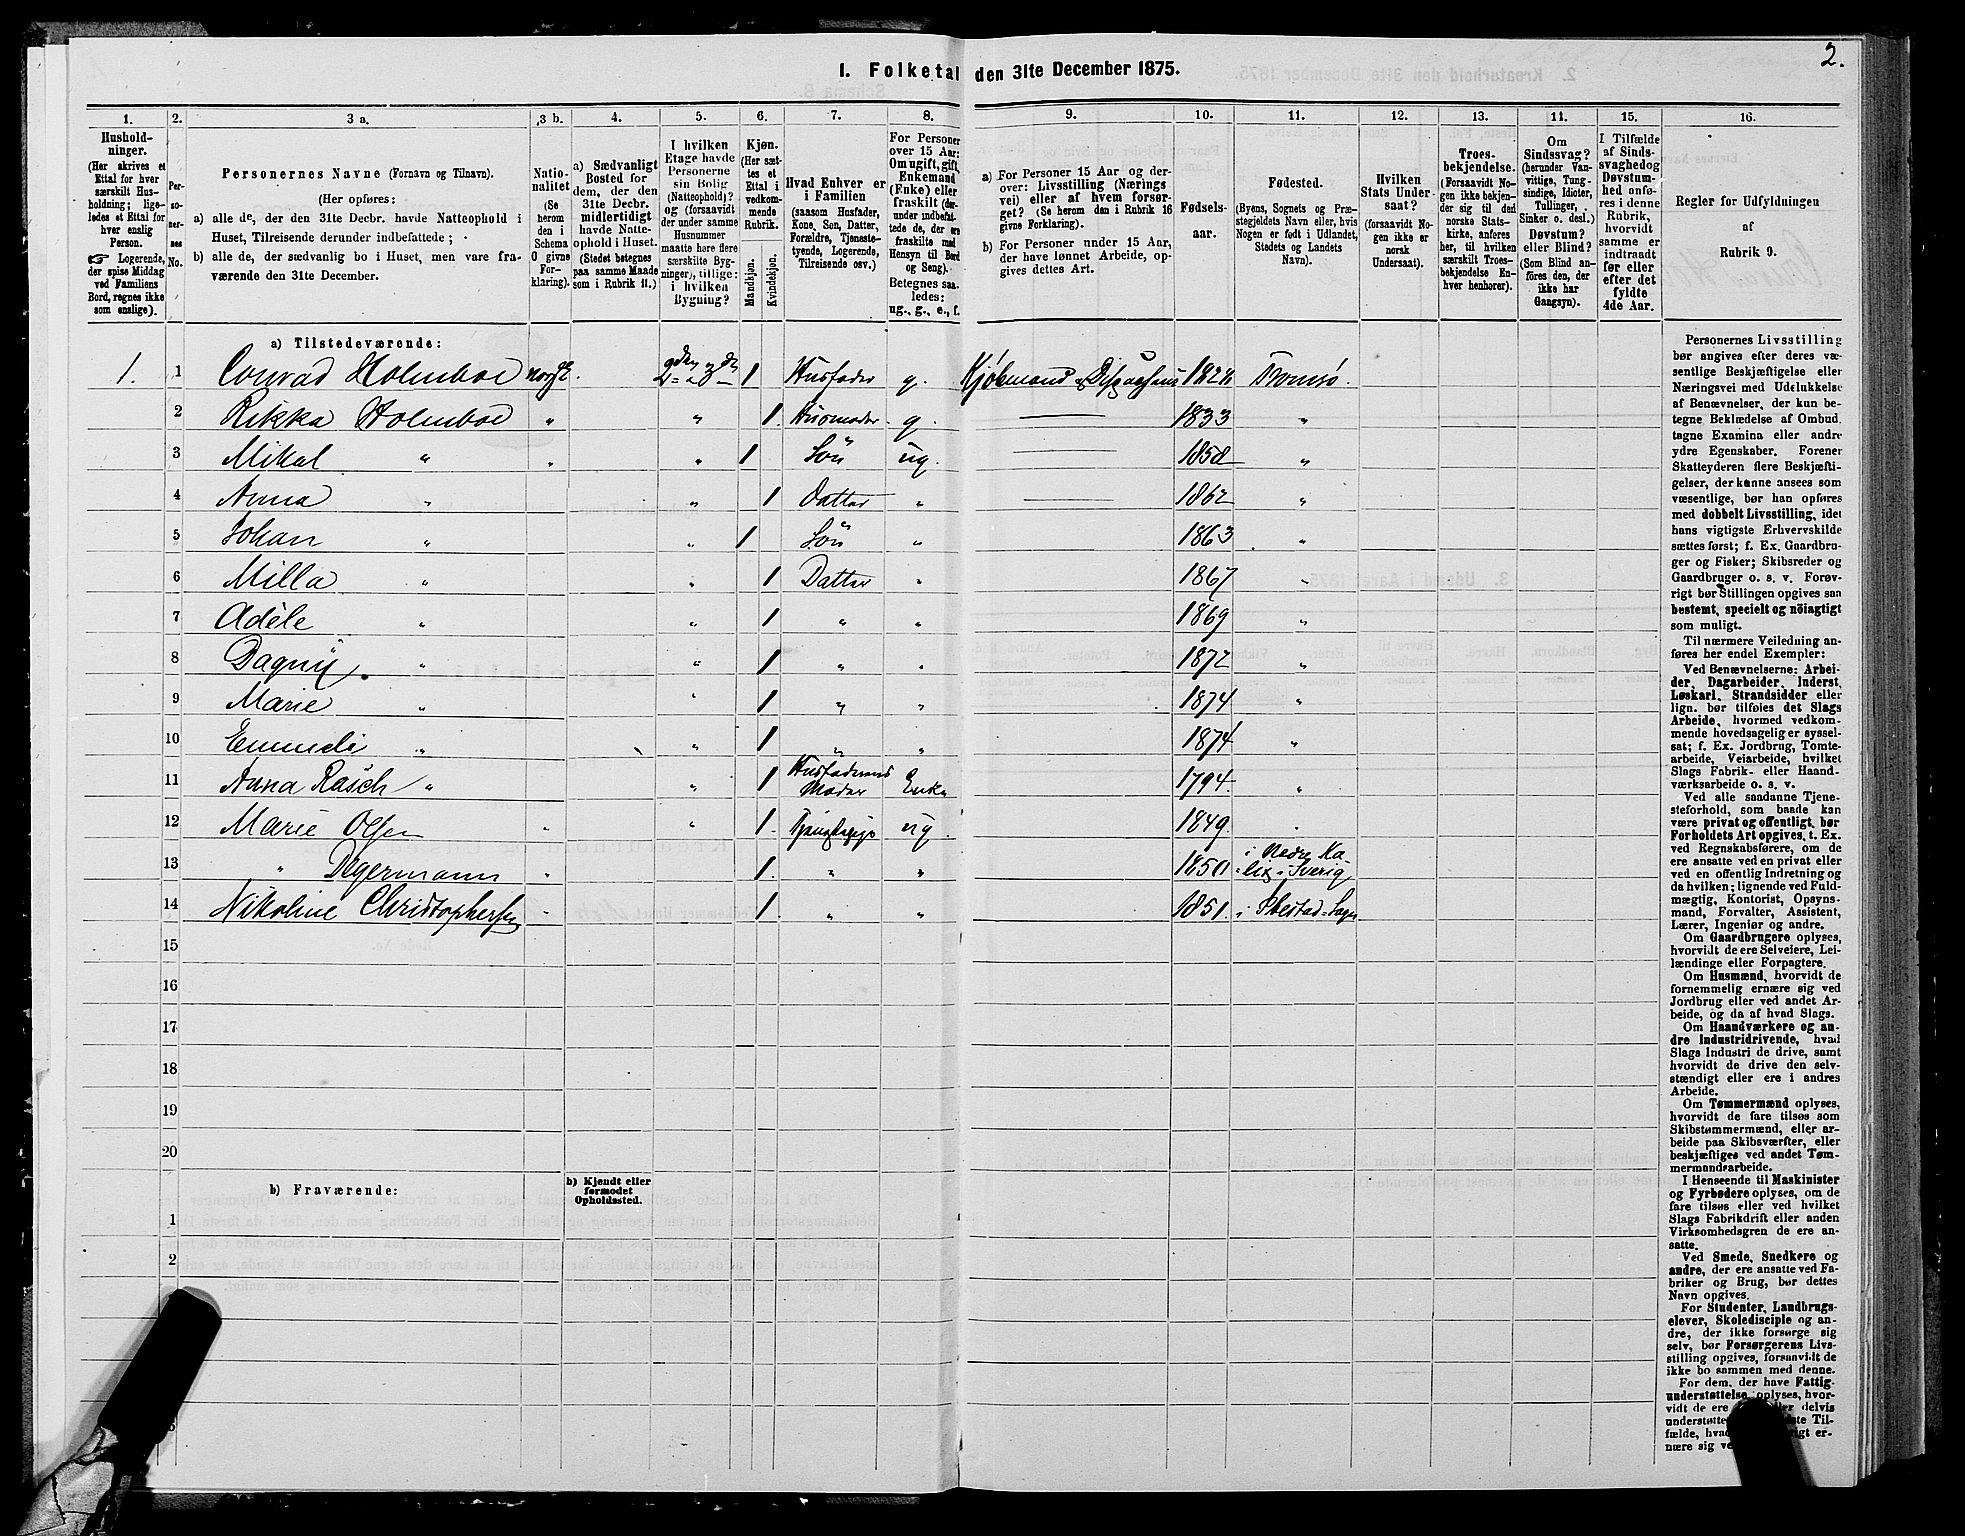 2.
I. Folketal den 31te December 1875.
1.
Hushold-
ninger.
(Her skrives et
Ettal for hver
særskilt Hus-
holdning; lige-
ledes et Ettal for
hver enslig
Person.
☞ Logerende,
der spise Middag
ved Familiens
Bord, regnes ikke
som enslige).
2.
Per-
so-
ner-
nes
No.
3 a.
Personernes Navne (Fornavn og Tilnavn).
(Her opføres:
a) alle de, der den 31te Decbr. havde Natteophold i
Huset, Tilreisende derunder indbefattede;
b) alle de, der sædvanlig bo i Huset, men vare fra-
værende den 31te December.
3 b.
Natio-
nalitet
(Se
herom
den i
Schema
O givne
For-
klaring).
4.
a) Sædvanligt
Bosted for
dem, der den
31te Decbr.
midlertidigt
havde Natte-
ophold i Huset.
(Stedet betegnes
paa samme Maade
som i Rubrik 11.)
5.
I hvilken
Etage havde
Personerne
sin Bolig
(Natteophold)?
og (forsaavidt
der under samme
Husnummer
maatte høre flere
særskilte Byg-
ninger), tillige:
i hvilken
Bygning?
6.
Kjøn.
(Her sæt-
tes et
Ettal i
vedkom-
mende
Rubrik.
Mandkjøn.
Kvindekjøn.
7.
Hvad Enhver er
i Familien
(saasom Husfader,
Kone, Søn, Datter,
Forældre, Tjeneste-
tyende, Logerende,
Tilreisende osv.)
8.
For Personer
over 15 Aar:
Om ugift, gift,
Enkemand
(Enke) eller
fraskilt (der-
under indbefat-
tede de, der ere
fraskilte med
Hensyn til Bord
og Seng).
Betegnes saa-
ledes:
ug., g., e., f.
9.
a) For Personer 15 Aar og der-
over: Livsstilling (Nærings
vei) eller af hvem forsør-
get? (Se herom den i Rubrik 16
givne Forklaring).
b) For Personer under 15 Aar,
der have lønnet Arbeide, op-
gives dettes Art.
10.
Fødsels-
aar.
11.
Fødested.
(Byens, Sognets og Præ-
stegjeldets Navn eller, hvis
Nogen er født i Udlandet,
Stedets og Landets
Navn).
12.
Hvilken
Stats Under-
saat?
(forsaavidt No-
gen ikke er
norsk
Undersaat).
13.
Troes-
bekjendelse.
(Forsaavidt No-
gen ikke bekjen-
der sig til den
norske Stats-
kirke, anføres
her, til hvilken
særskilt Troes-
bekjendelse En-
hver henhører).
11.
Om
Sindssvag?
(herunder Van-
vittige, Tung-
sindige, Idioter,
Tullinger,
Sinker o. desl.)
Døvstum?
eller Blind?
(Som Blind an-
føres den, der
ikke har
Gangsyn).
15.
I Tilfælde
af Sinds-
svaghed og
Døvstum-
hed onfø-
res i denne
Rubrik,
hvorvidt
samme er
indtraadt
før eller
efter det
fyldte
4de Aar.
16.
Regler for Udfyldningen
af
Rubrik 9.
a) Tilstedeværende:
1. 1 Conrad Holmboe norsk. 2den 3de 1 Husfader g. Kjøbmand 1828 Tromsø.
2 Rikka Holmboe " " 1. Husmoder g. 1833 "
3 Mikal " " " 1 Søn ug. 1858 "
4 Anna " " 1 Datter " 1862 "
5 Johan " " 1 Søn " 1863 "
6 Milla " " 1 Datter " 1867 "
7 Adèle " " 1 " " 1869 "
8 Dagny " " 1 " " 1872 "
9 Marie " " 1 " " 1874 "
10 " " 1 " " 1874 "
11 Anna Rasch " " 1 Husfaderens
Moder Enke 1794. "
12 Marie Olsen " " 1. ug. 1849. "
13 " Degermann " 1. " " 1850 i Nedre Ka-
lix i Sverig
14 Nikoline Christophersen " 1. " " 1851. i Ibestad Sogn
15
16
17
18
19
20
b) Fraværende:
b) Kjendt eller
formodet
Opholdssted.
1
2
Personernes Livsstilling
bør angives efter deres væ-
sentlige Beskjæftigelse eller
Næringsvei med Udelukkelse
af Benævnelser, der kun be-
tegne Beklædelse af Ombud,
tagne Examina eller andre
ydre Egenskaber. Forener
Skatteyderen flere Beskjæfti-
gelser, der kunne ansees som
væsentlige, bør han opføres
med dobbelt Livsstilling, idet
hans vigtigste Erhvervskilde
sættes først; f. Ex. Gaardbru-
ger og Fisker; Skibsreder og
Gaardbruger o. s. v. Forøv-
rigt bør Stillingen opgives saa
bestemt, specielt og nöiagtigt
som muligt.
Til nærmere Veiledning an-
føres her endel Exempler:
Ved Benævnelserne: Arbei-
der, Dagarbeider, Inderst,
Løskarl, Strandsidder eller
lign. bør tilføies det Slags
Arbeide, hvormed vedkom-
mende hovedsagelig er syssel-
sat; f. Ex. Jordbrug, Tomte-
arbeide, Veiarbeide, hvilket
Slags Fabrik- eller Haand-
værksarbeide o. s. v.
Ved alle saadanne Tjene-
steforhold, som baade kan
være privat og offentligt, bør
Forholdets Art opgives, t. Ex.
ved Regnskabsførere, om de
ere ansatte ved en privat eller
ved en offentlig Indretning og
da hvilken; lignende ved Fuld-
mægtig, Kontorist, Opsyns-
mand, Forvalter, Assistent,
Lærer, Ingeniør og andre.
Om Gaardbrugere oplyses,
hvorvidt de ere Selveiere, Lei-
lændinge eller Forpagtere.
Om Husmænd, hvorvidt de
fornemmelig ernære sig ved
Jordbrug eller ved andet Ar-
beide, og da af hvad Slags.
Om Haandværkere og an-
dre Industridrivende, hvad
Slags Industri de drive, samt
hvorvidt de drive den selv-
stændigt eller ere i andres
Arbeide.
Om Tømmermænd oplyses,
hvorvidt de fare tilsøs som
Skibstømmermænd, eller ar-
beide paa Skibsværfter, eller
beskjæftiges ved andet Tøm-
mermandsarbeide.
I Henseende til Maskinister
og Fyrbødere oplyses, om de
fare tilsøs eller ved hvilket
Slags Fabrikdrift eller anden
Virksomhedsgren de ere an-
satte.
Ved Smede, Snedkere og
andre, der ere ansatte ved Fa-
briker og Brug, bør dettes
Navn opgives.
For Studenter, Landbrugs-
elever, Skoledisciple og an-
dre, der ikke forsørge sig
selv, bør Forsørgerens Livs-
stilling opgives, forsaavidt de
ikke bo sammen med denne.
For dem, der have Fattig-
understøttelse, oplyses, hvor-
vidt de ere delvis
understøtte Til-
fælde, er-
nære sig